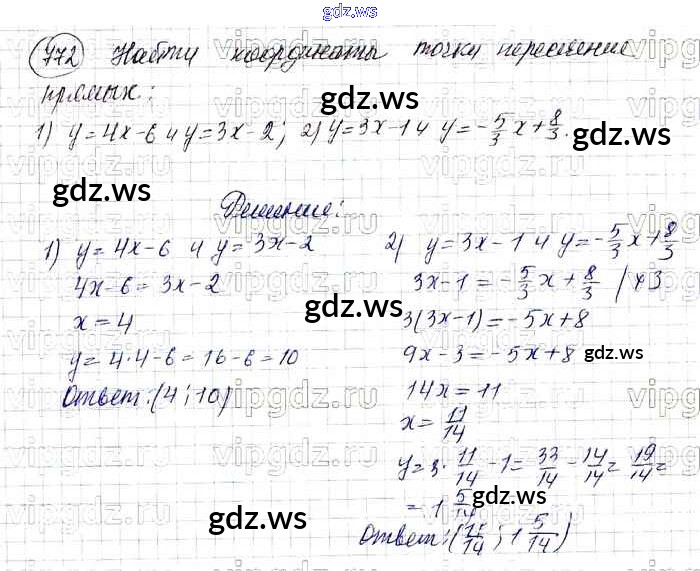 gdz.ws
772 Найти координаты точки пересечение
прямых:
gdz.ws
1) y=4x-6 и y=3x-2; 2) y=3x-1 и y=-5/3 x+8/3.
gdz.ws
gdz.ws
Решение:
1) y=4x-6 и y=3x-2
4x-6=3x-2
x=4
y=4·4-6=16-6=10
Ответ: (4; 10)
gdz.ws
2) y=3x-1 и y=-5/3 x+8/3
3x-1=-5/3 x+8/3 /×3
3(3x-1)=-5x+8
9x-3=-5x+8
gdz.ws
14x=11
x=11/14
y=3·11/14-1=33/14-14/14=19/14=
=1 5/14
gdz.ws
Ответ: (11/14; 1 5/14)
gdz.ws
gdz.ws
vipgdz.ru